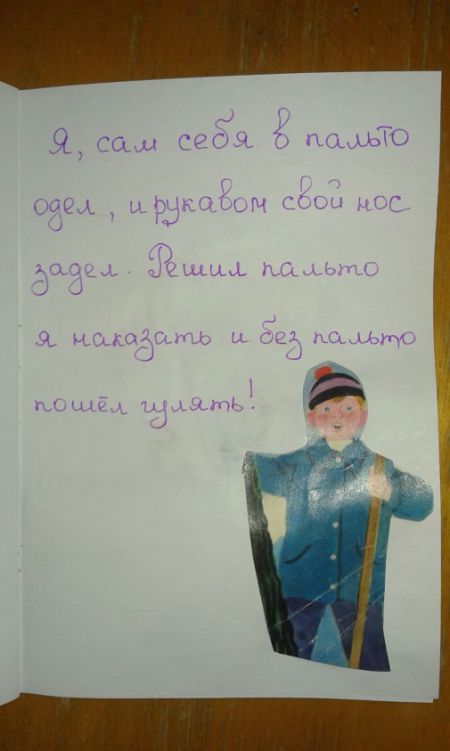 Я, сам себя в пальто
одел, и рукавом свой нос
задел. Решил пальто
я наказать и без пальто
пошёл гулять!